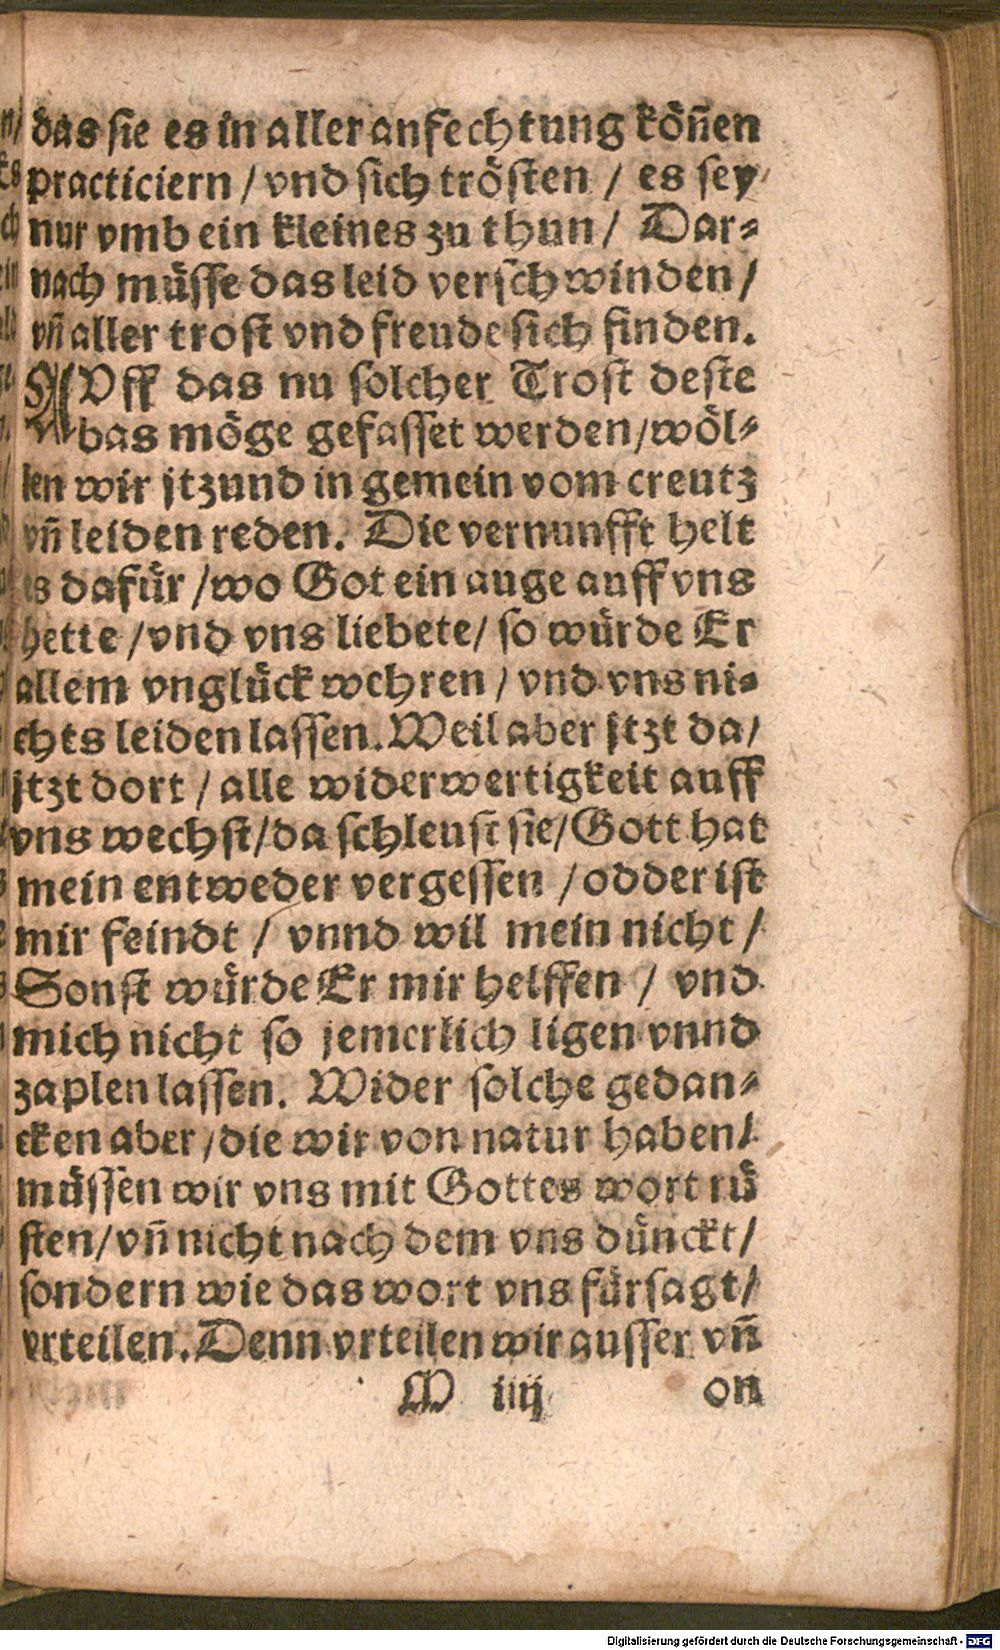 das sie es in aller anfechtung köñen
practiciern / vnd sich trösten / es sey
nur vmb ein kleines zu thun / Dar⸗
nach müsse das leid verschwinden /
vñ aller trost vnd freude sich finden.
AVff das nu solcher Trost deste
bas möge gefasset werden / wöl⸗
len wir jtzund in gemein vom creutz
vñ leiden reden. Die vernunfft helt
es dafür / wo Got ein auge auff vns
hette / vnd vns liebete / so würde Er
allem vnglück wehren / vnd vns ni⸗
chts leiden lassen. Weil aber jtzt da /
jtzt dort / alle widerwertigkeit auff
vns wechst / da schleust sie / Gott hat
mein entweder vergessen / odder ist
mir feindt / vnnd wil mein nicht /
Sonst würde Er mir helffen / vnd
mich nicht so jemerlich ligen vnnd
zaplen lassen. Wider solche gedan⸗
cken aber / die wir von natur haben /
müssen wir vns mit Gottes wort rü
sten / vñ nicht nach dem vns dünckt /
sondern wie das wort vns fürsagt /
vrteilen. Denn vrteilen wir ausser vñ
M iiij on
Digitalisierung gefördert durch die Deutsche Forschungsgemeinschaft - DFG